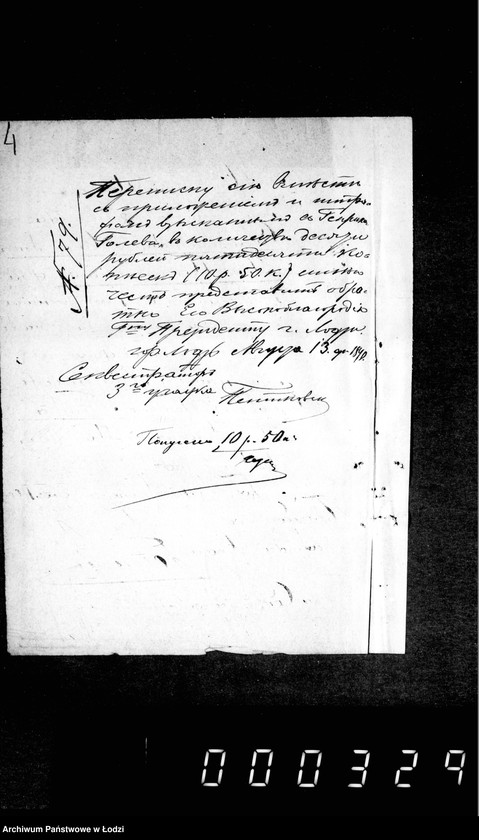 4
№ 79.
Переписку сію вмѣстѣ
съ приложеніемъ и штра-
фомъ взысканнымъ съ Генриха
въ количествѣ десяти
рублей пятидесяти ко-
пѣекъ (10 р. 50 к.)
честь представить обра-
тно Его Высокоблагородію
Президенту г. Лодзи.
гор. Лодзь 13. дн.
Секвестраторъ
3го участка
Получена 10 р. 50 к:
000329
Archiwum Państwowe w Łodzi